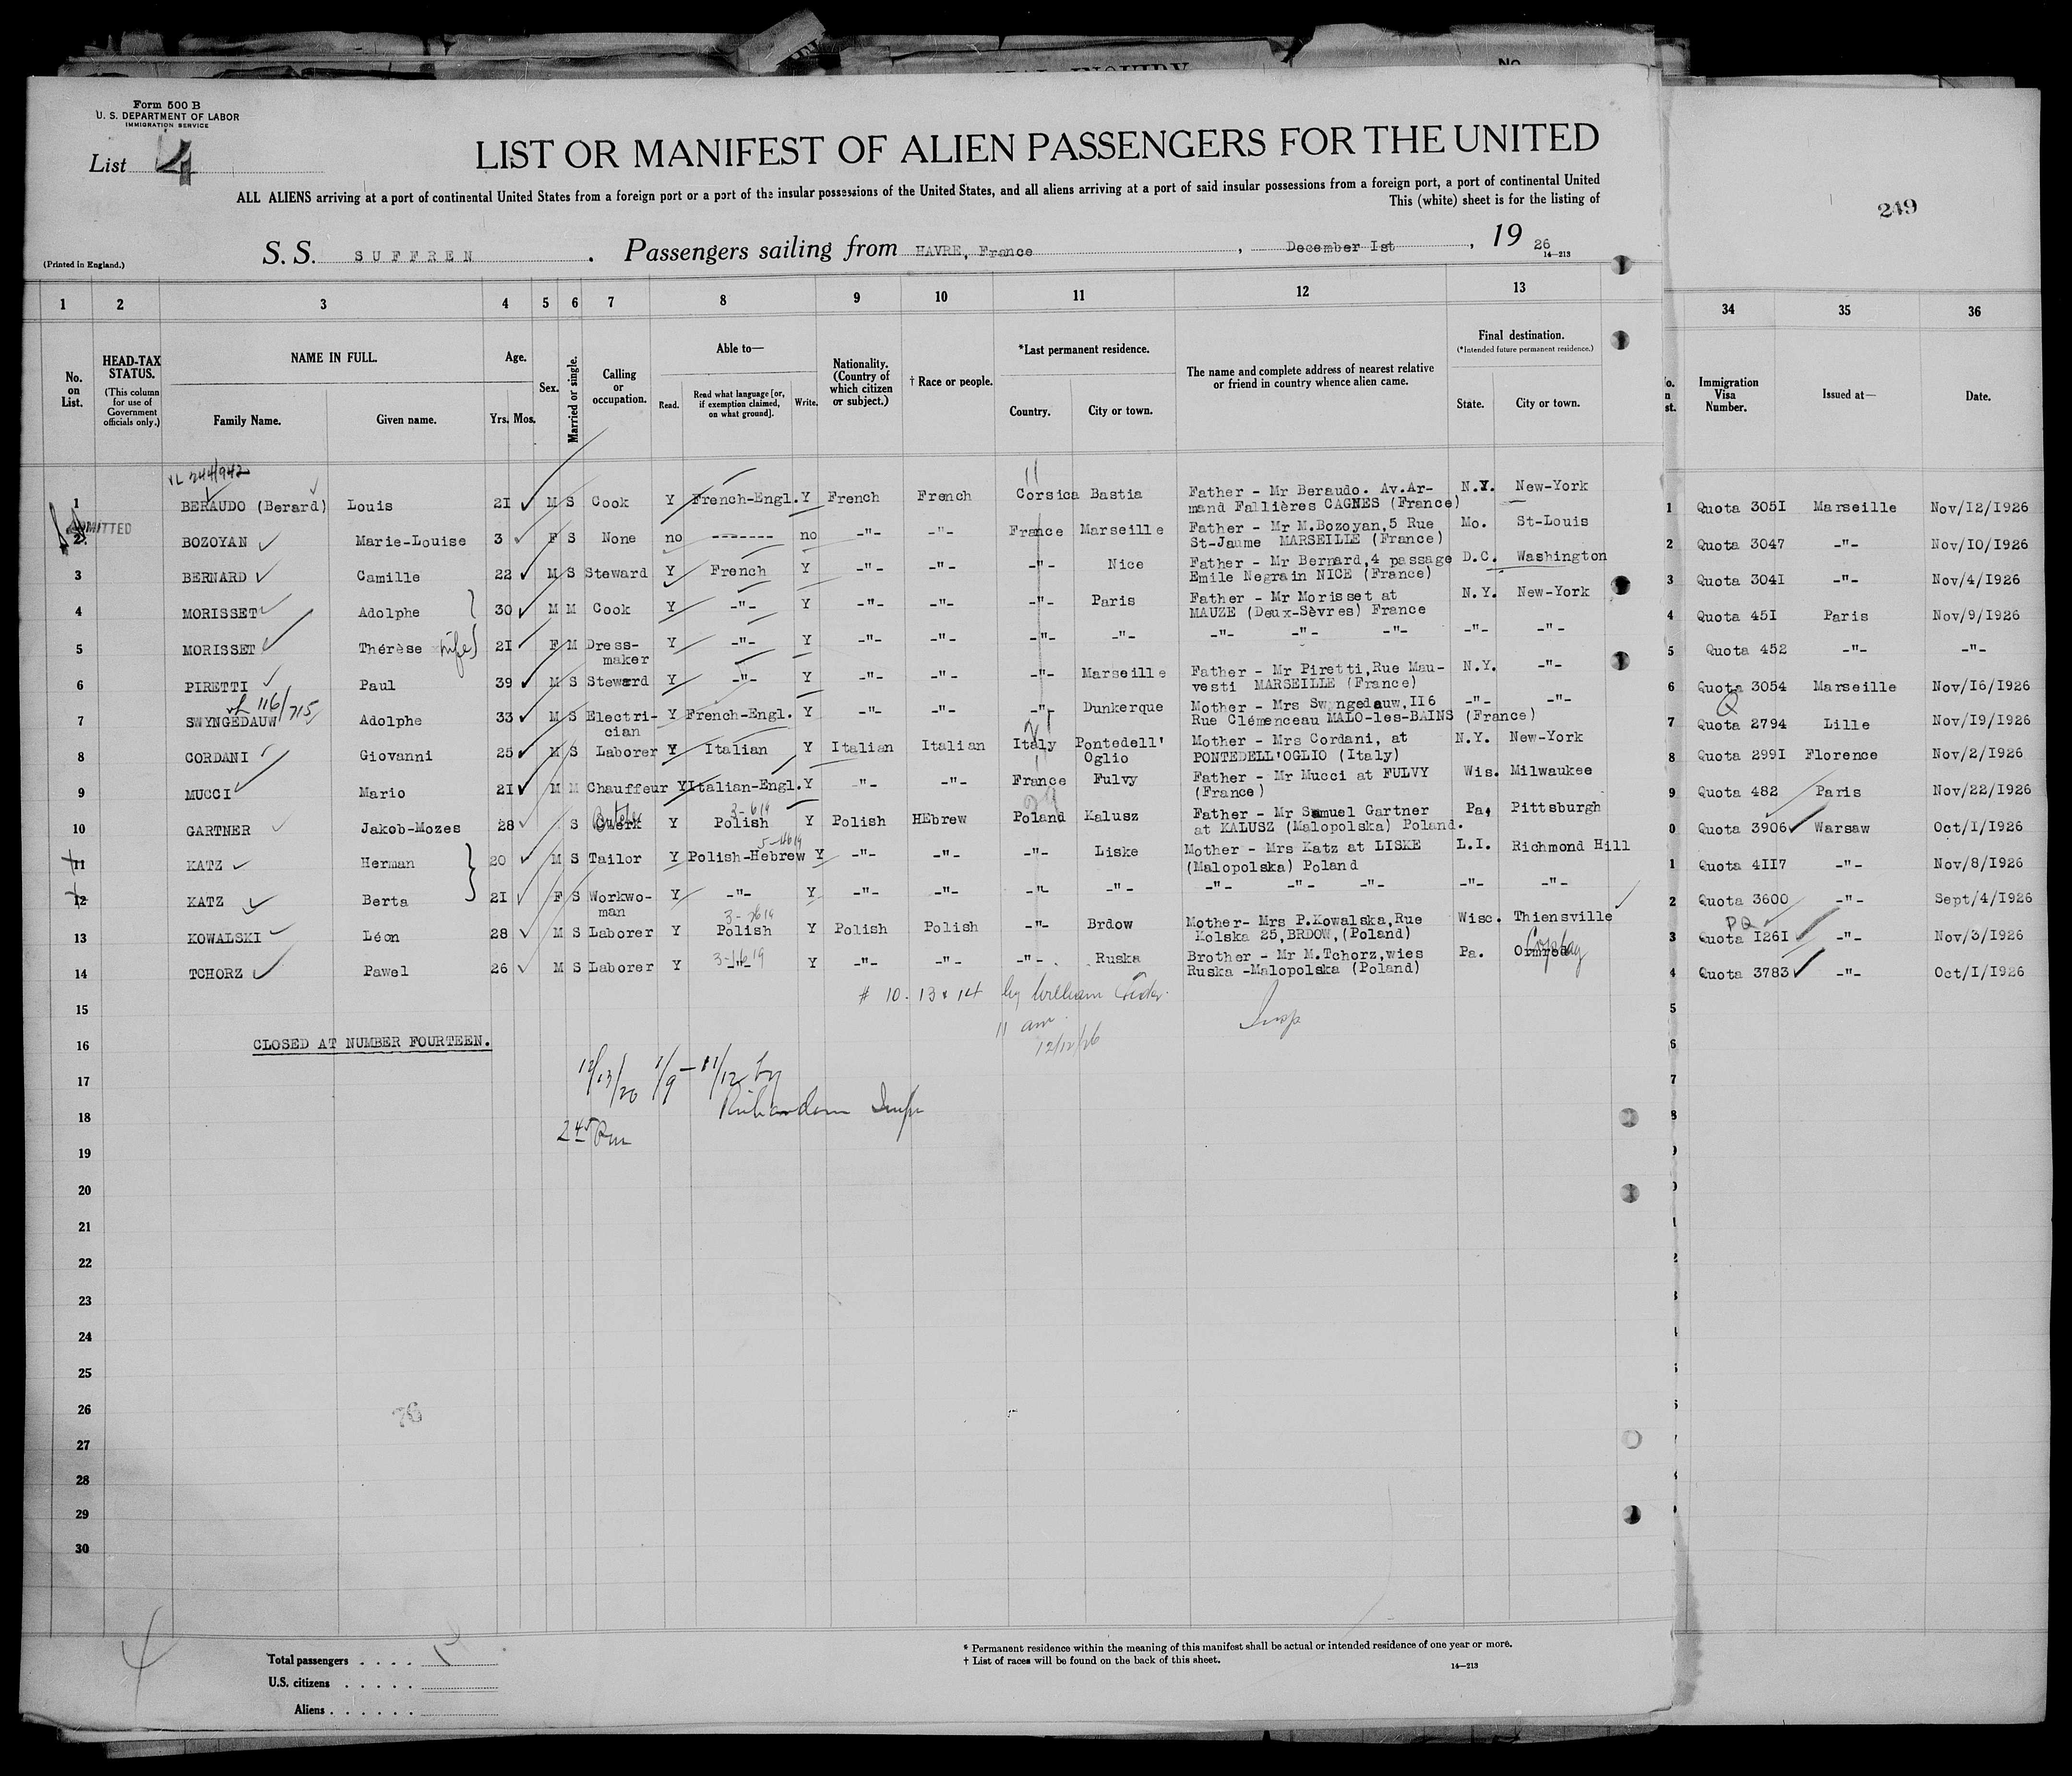 Form 500 B
U. S. DEPARTMENT OF LABOR
IMMIGRATION SERVICE
List 4
LIST OR MANIFEST OF ALIEN PASSENGERS FOR THE UNITED
ALL ALIENS arriving at a port of continental United States from a foreign port or a port of the insular possessions of the United States, and all aliens arriving at a port of said insular possessions from a foreign port, a port of continental United
This (white) sheet is for the listing of
249
(Printed in England.)
S. S. SUFFREN . Passengers sailing from HAVRE, France , December Ist , 19 26
14—213
1 2 3 4 5 6 7 8 9 10 11 12 13 34 35 36
No. on List.
HEAD-TAX STATUS.
(This column for use of Government officials only.)
NAME IN FULL.
Family Name. Given name.
Age.
Yrs. Mos.
Sex.
Married or single.
Calling or occupation.
Able to—
Read. Read what language [or, if exemption claimed, on what ground]. Write.
Nationality. (Country of which citizen or subject.)
† Race or people.
*Last permanent residence.
Country. City or town.
The name and complete address of nearest relative or friend in country whence alien came.
Final destination.
(*Intended future permanent residence.)
State. City or town.
Immigration Visa Number.
Issued at—
Date.
244/942
11
1 BERAUDO (Berard) Louis 2I M S Cook Y French-Engl. Y French French Corsica Bastia Father - Mr Beraudo. Av.Ar- N.Y. New-York 1 Quota 305I Marseille Nov/I2/I926
mand Fallières CAGNES (France)
ADMITTED
2 BOZOYAN Marie-Louise 3 F S None no ------- no -"- -"- France Marseille Father - Mr M.Bozoyan,5 Rue Mo. St-Louis 2 Quota 3047 -"- Nov/IO/I926
St-Jaume MARSEILLE (France)
3 BERNARD Camille 22 M S Steward Y French Y -"- -"- -"- Nice Father - Mr Bernard,4 passage D.C. Washington 3 Quota 304I -"- Nov/4/I926
Emile Negrain NICE (France)
4 MORISSET Adolphe 30 M M Cook Y -"- Y -"- -"- -"- Paris Father - Mr Morisset at N.Y. New-York 4 Quota 45I Paris Nov/9/I926
MAUZE (Deux-Sèvres) France
5 MORISSET Thérèse wife 2I F M Dress- Y -"- Y -"- -"- -"- -"- -"- -"- -"- -"- -"- 5 Quota 452 -"- -"-
maker
6 PIRETTI Paul 39 M S Steward Y -"- Y -"- -"- -"- Marseille Father - Mr Piretti,Rue Mau- N.Y. -"- 6 Quota 3054 Marseille Nov/I6/I926
vesti MARSEILLE (France)
116/715
Q
7 SWYNGEDAUW Adolphe 33 M S Electri- Y French-Engl. Y -"- -"- -"- Dunkerque Mother - Mrs Swyngedauw,II6 -"- -"- 7 Quota 2794 Lille Nov/I9/I926
cian Rue Clémenceau MALO-les-BAINS (France)
8 CORDANI Giovanni 25 M S Laborer Y Italian Y Italian Italian Italy Pontedell' Mother - Mrs Cordani, at N.Y. New-York 8 Quota 299I Florence Nov/2/I926
Oglio PONTEDELL'OGLIO (Italy)
9 MUCCI Mario 2I M M Chauffeur Y Italian-Engl. Y -"- -"- France Fulvy Father - Mr Mucci at FULVY Wis. Milwaukee 9 Quota 482 Paris Nov/22/I926
(France)
10 GARTNER Jakob-Mozes 28 S Clerk Butcher Y Polish Y Polish HEbrew Poland Kalusz Father - Mr Samuel Gartner Pa, Pittsburgh 0 Quota 3906 Warsaw Oct/I/I926
at KALUSZ (Malopolska) Poland.
11 KATZ Herman 20 M S Tailor Y Polish-Hebrew Y -"- -"- -"- Liske Mother - Mrs Katz at LISKE L.I. Richmond Hill 1 Quota 4II7 -"- Nov/8/I926
(Malopolska) Poland
12 KATZ Berta 2I F S Workwo- Y -"- Y -"- -"- -"- -"- -"- -"- -"- -"- -"- 2 Quota 3600 -"- Sept/4/I926
man
PQ
13 KOWALSKI Léon 28 M S Laborer Y Polish Y Polish Polish -"- Brdow Mother- Mrs P.Kowalska,Rue Wisc. Thiensville 3 Quota I26I -"- Nov/3/I926
Kolska 25,BRDOW,(Poland)
14 TCHORZ Pawel 26 M S Laborer Y -"- Y -"- -"- -"- Ruska Brother - Mr M.Tchorz,wies Pa. Ormrod 4 Quota 3783 -"- Oct/I/I926
Ruska -Malopolska (Poland)
# 10 - 13 & 14 by William
11 am. Insp
12/12/26
15 5
16 CLOSED AT NUMBER FOURTEEN. 6
12/13/26 1/9 - 11/12 by
Richardson Insp
2 45 Pm
17 7
18 8
19
20
21
22
23
24
25
26
76
27
28
29
30
Total passengers . . . .
U.S. citizens . . . . .
Aliens . . . . . .
* Permanent residence within the meaning of this manifest shall be actual or intended residence of one year or more.
† List of races will be found on the back of this sheet.
14—213